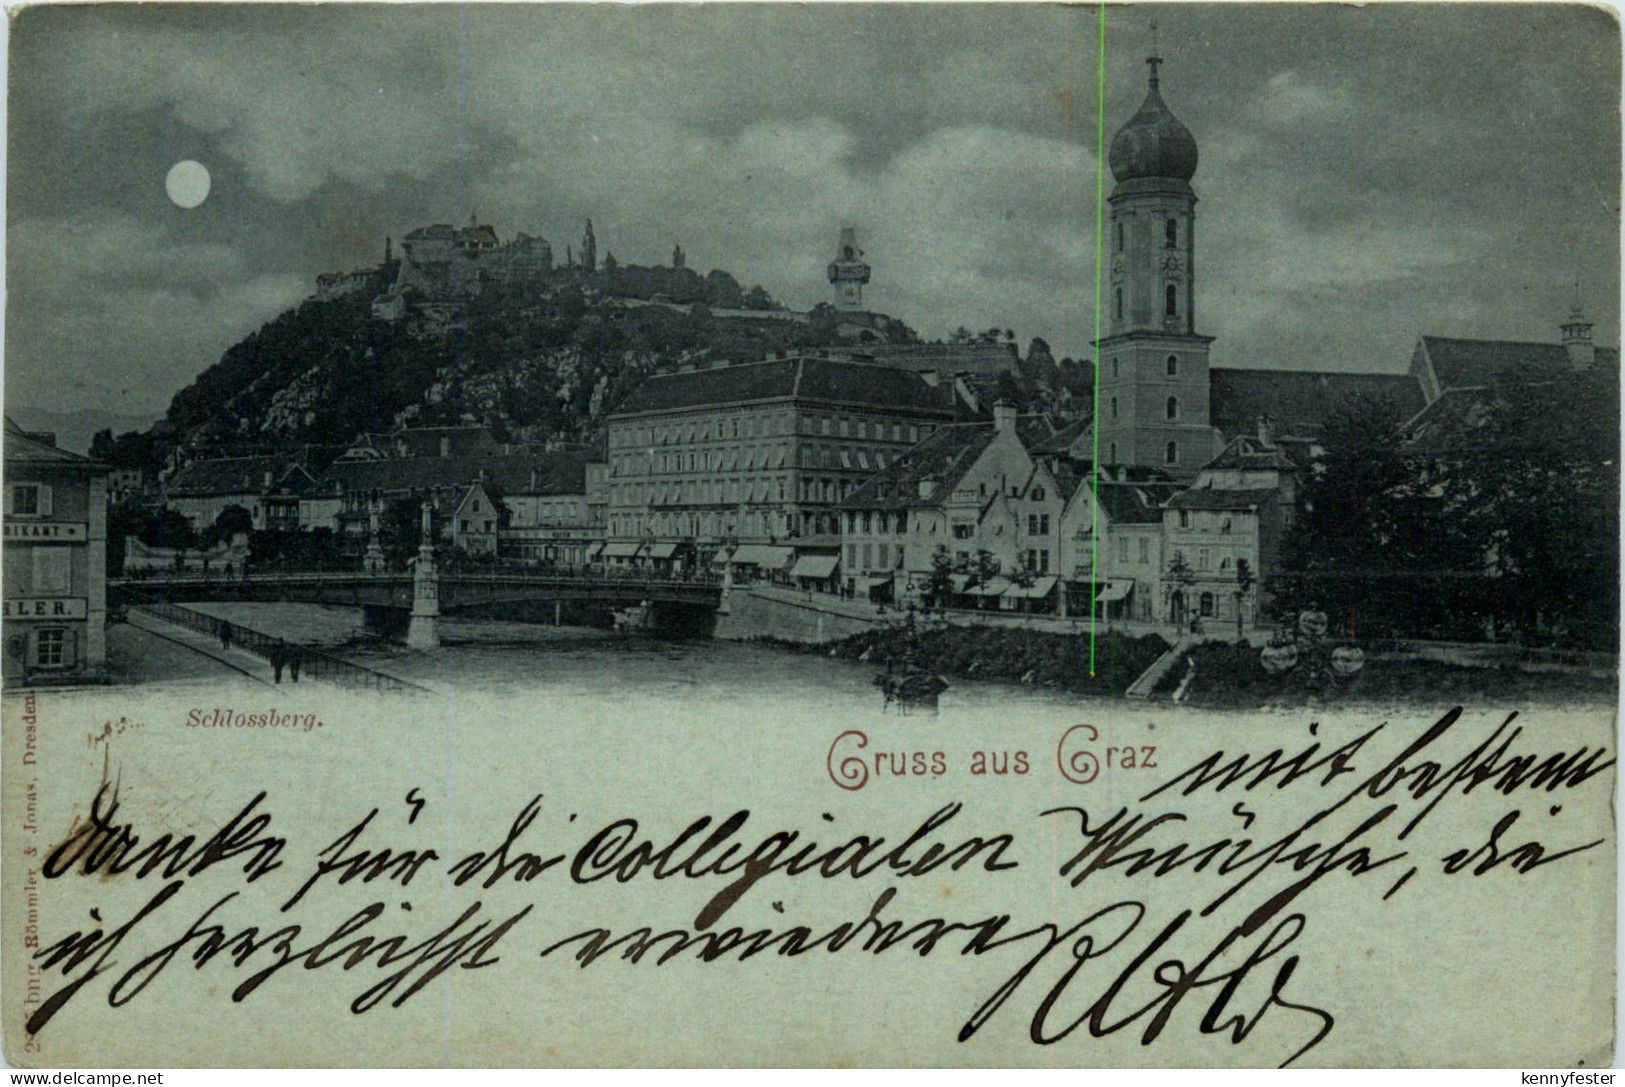 RIKANT *
HLER.
Schlossberg.
Gruss aus Graz
mit bestem
Danke für die Collegialen Wünsche, die
ich herzlichst erwiedere
Römmler & Jonas, Dresden
www.delcampe.net
kennyfester